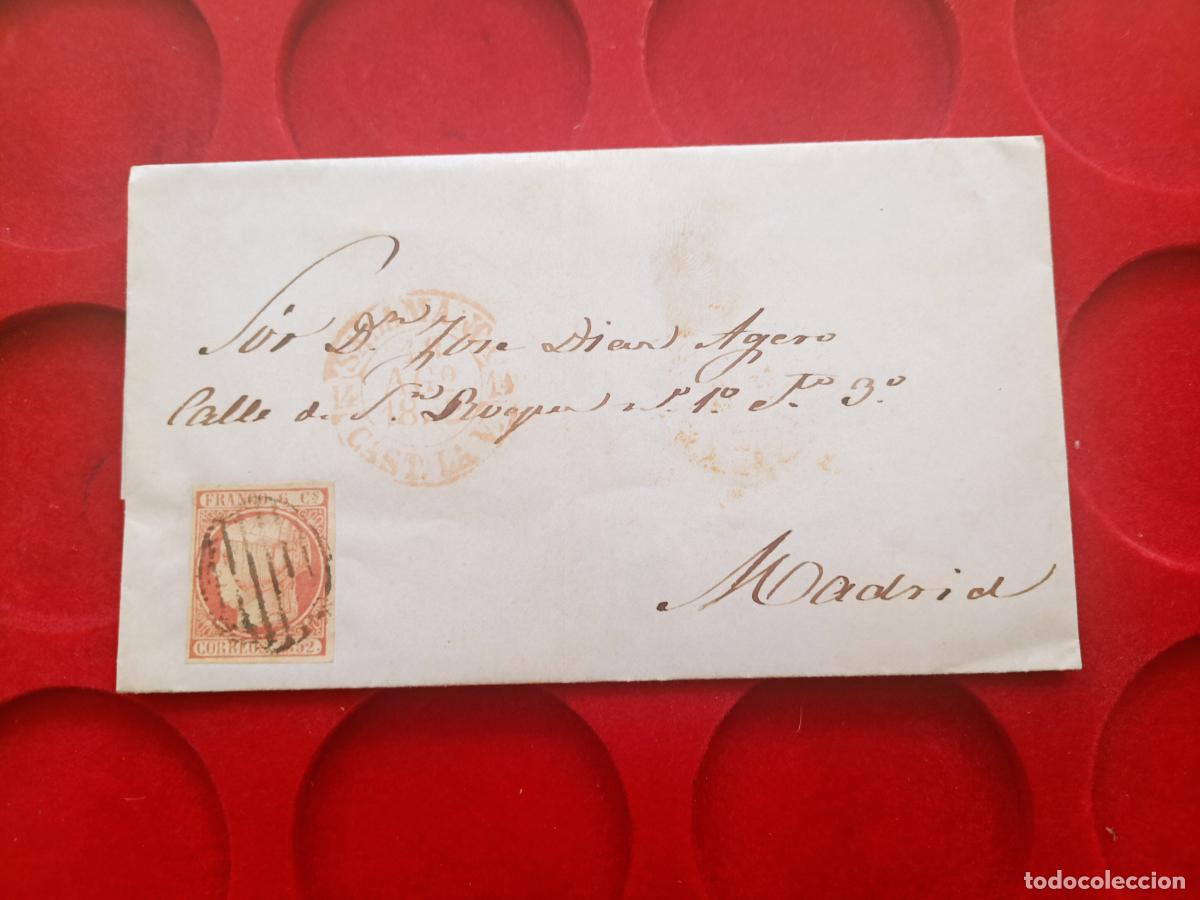 Sór Dn. Jose Diaz Agero
Calle de Sn. Roque
Madrid
14 AGO 14
CAST. LA N.
FRANCO 6 Cs.
CORREOS 1852.
todocoleccion